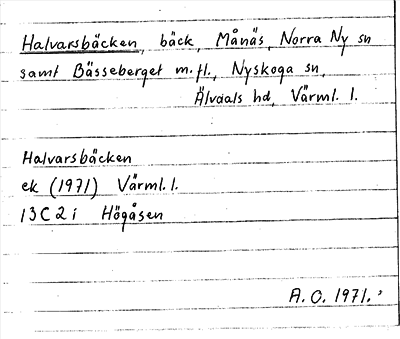 Halvarsbäcken, bäck, Månäs, Norra Ny sn
samt Bässeberget m.fl., Nyskoga sn,
Älvdals hd, Värml. l.
Halvarsbäcken
ek (1971) Värml. l.
13C 2 i Högåsen
A. O. 1971.